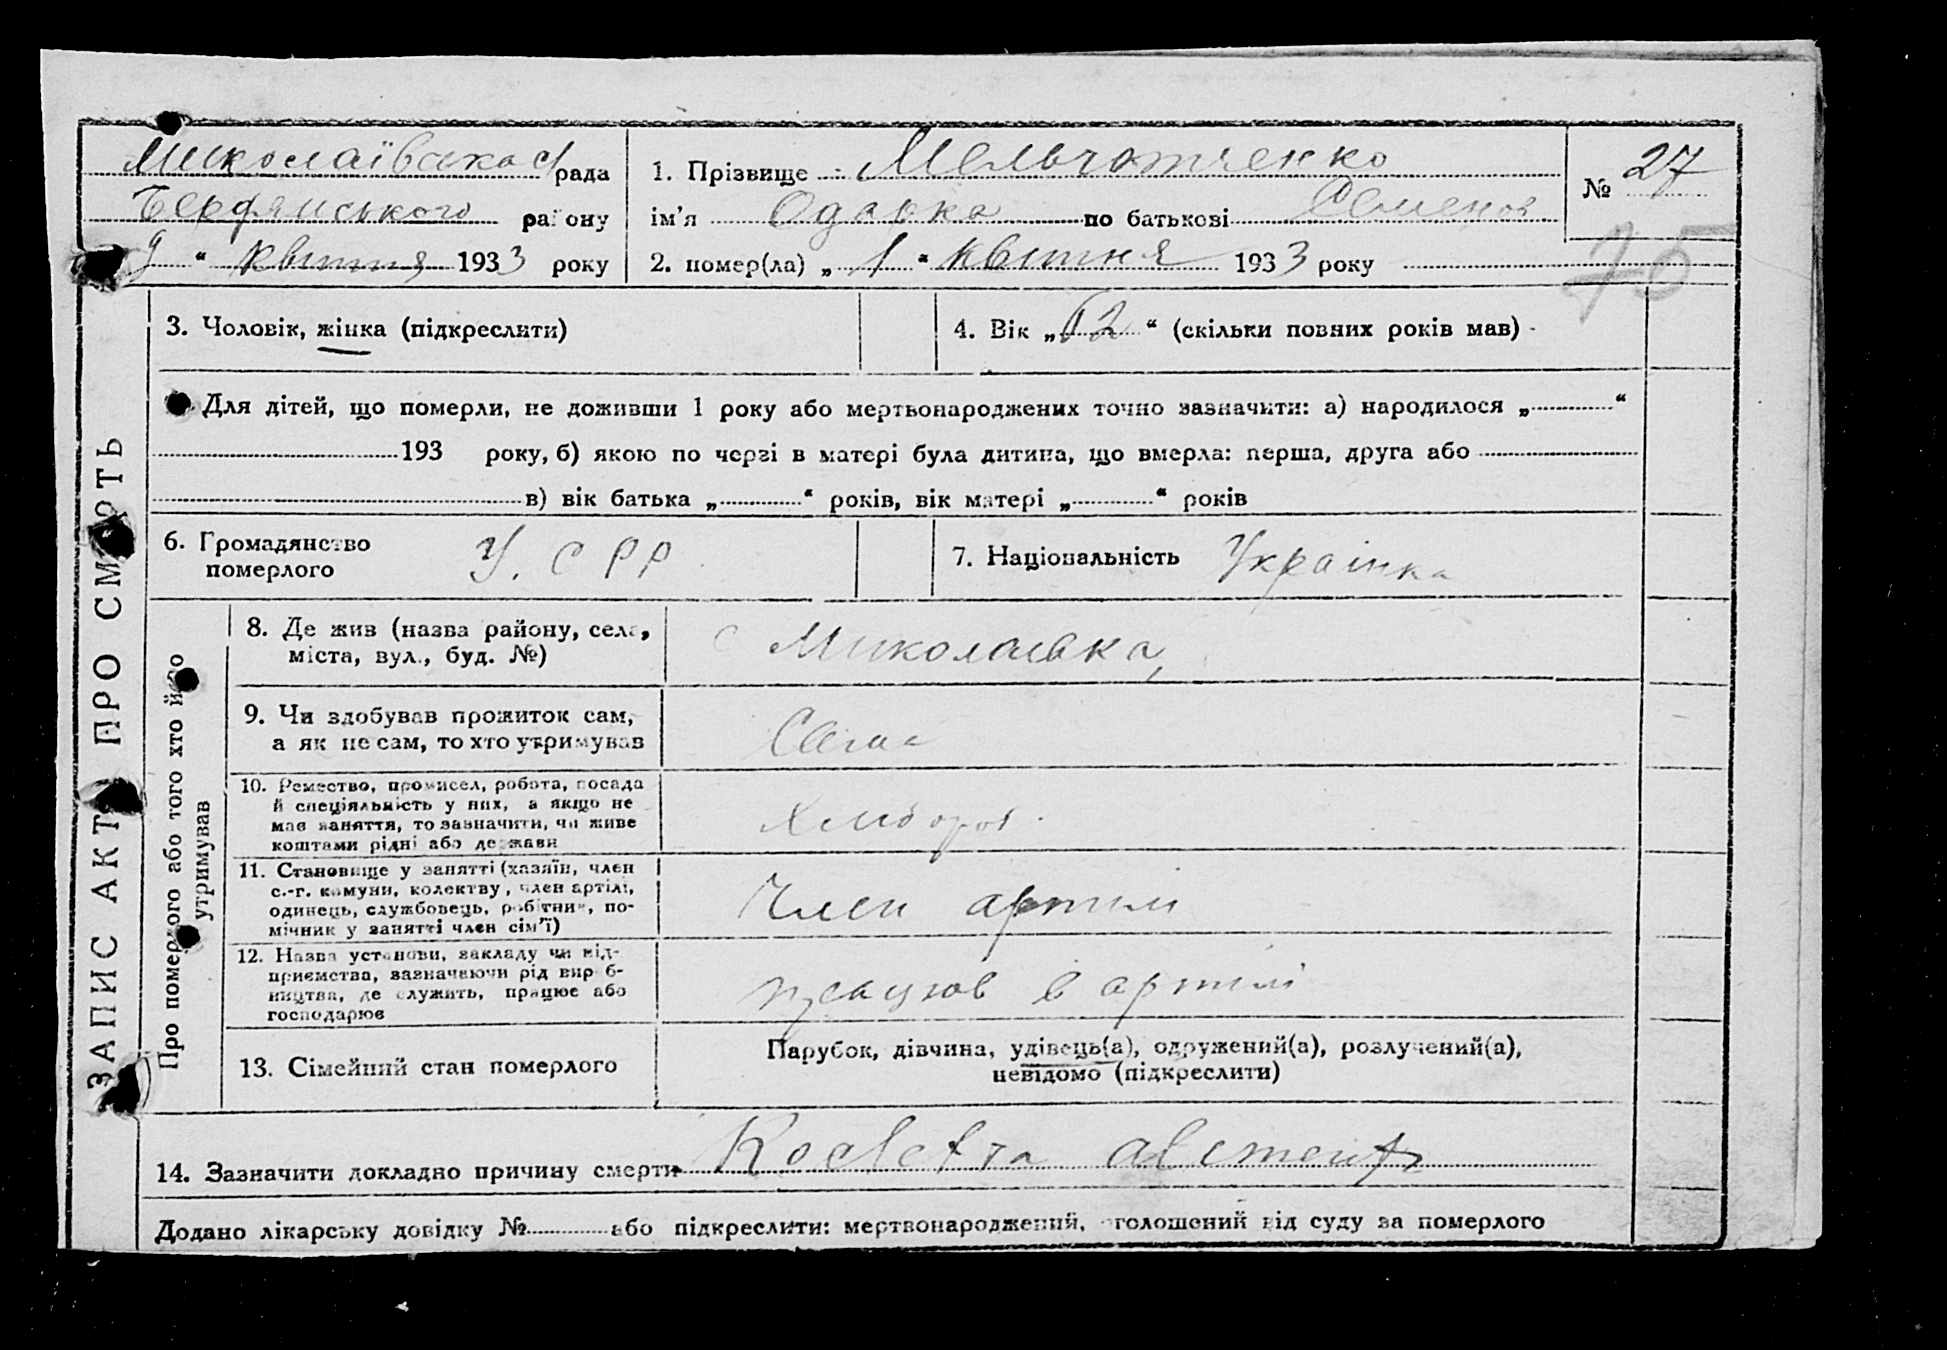 Миколаївська с/рада
1. Прізвище Мельчотченко
№ 27
Бердянського району
ім'я Одарка по батькові Семенов
75
9 “ квітня 1933 року
2. помер(ла) „ 1 “ квітня 1933 року
3. Чоловік, жінка (підкреслити)
4. Вік „62“ (скільки повних років мав)
Для дітей, що померли, не доживши 1 року або мертвонароджених точно зазначити: а) народилося „ “
193 року, б) якою по черзі в матері була дитина, що вмерла: перша, друга або
в) вік батька „ “ років, вік матері „ “ років
6. Громадянство
померлого
У. С Р Р
7. Національність Українка
8. Де жив (назва району, села,
міста, вул., буд. №)
с Миколаївка,
9. Чи здобував прожиток сам,
а як не сам, то хто утримував
Сама
10. Ремество, промисел, робота, посада
й спеціяльність у них, а якщо не
мав заняття, то зазначити, чи живе
коштами рідні або держави
Хлібороб
11. Становище у занятті (хазяїн, член
с.-г. комуни, колективу, член артілі,
одинець, службовець, робітник, по-
мічник у занятті член сім'ї)
Член артілі
12. Назва установи, закладу чи під-
приємства, зазначаючи рід вироб-
ництва, де служить, працює або
господарює
працюв в артілі
13. Сімейний стан померлого
Парубок, дівчина, удівець(а), одружений(а), розлучений(а),
невідомо (підкреслити)
14. Зазначити докладно причину смерти
Додано лікарську довідку № або підкреслити: мертвонароджений, оголошений від суду за померлого
ЗАПИС АКТУ ПРО СМЕРТЬ
Про померлого або того хто його
утримував